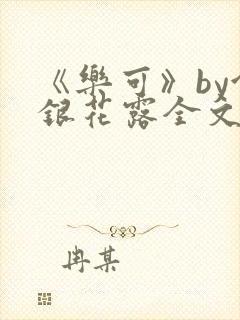 《樂可》by
銀花露全文
冉某